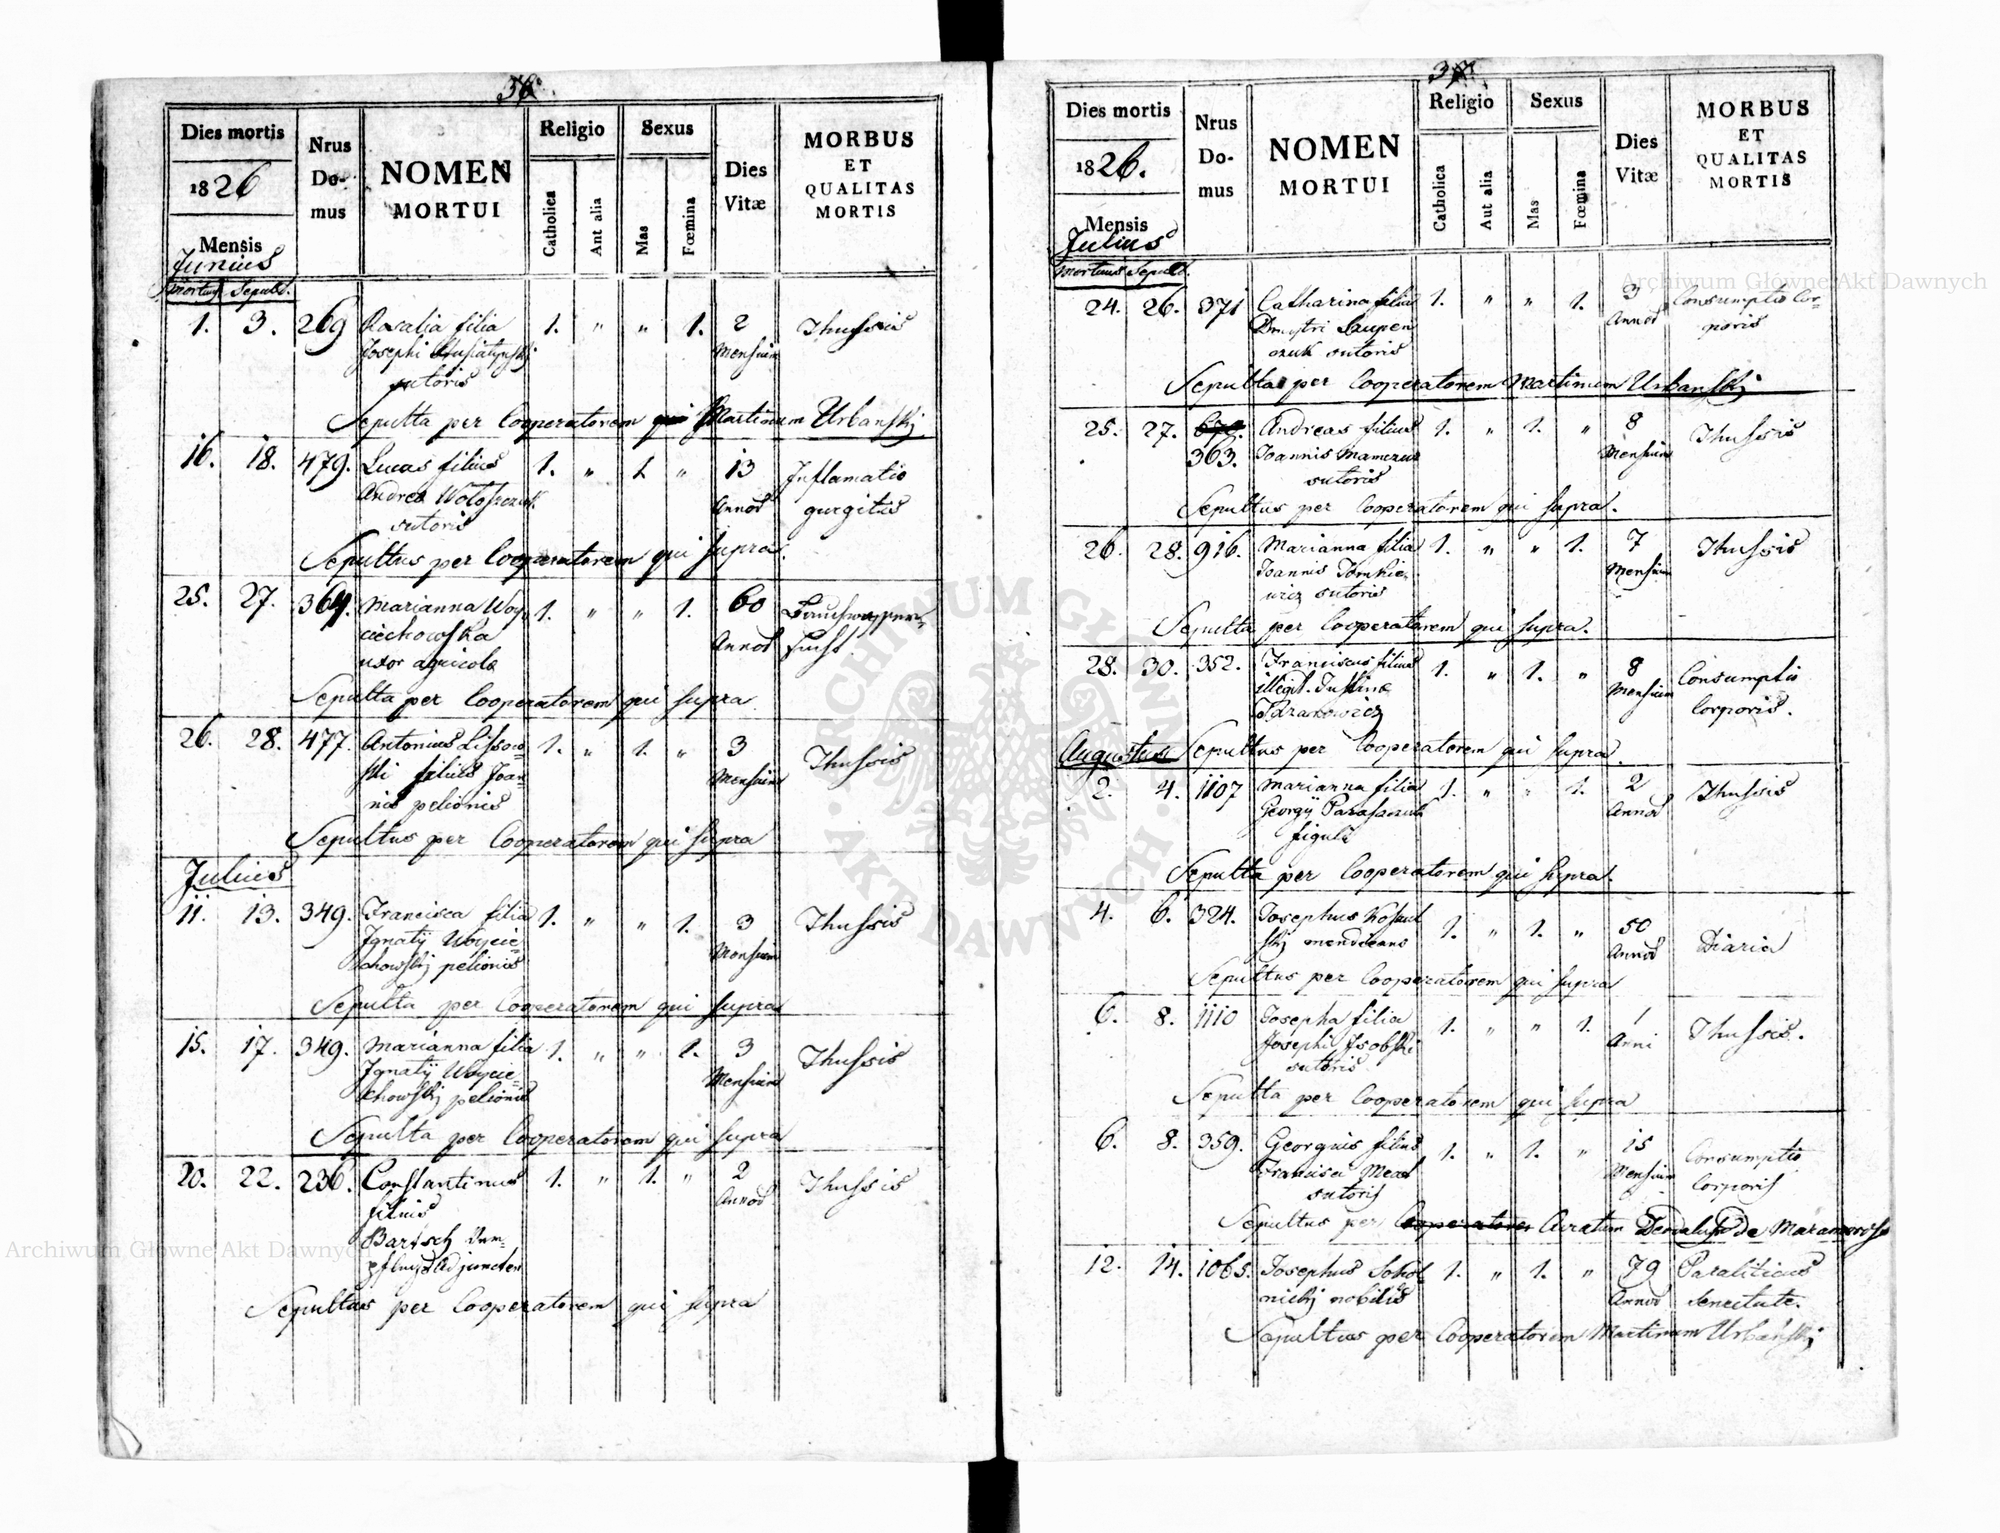 36.
Dies mortis
1826
Mensis
Junius
Mortuus Sepult.
Nrus
Do-
mus
NOMEN
MORTUI
Religio
Catholica
Aut alia
Sexus
Mas
Fœmina
Dies
Vitæ
MORBUS
ET
QUALITAS
MORTIS
1. 3. 269 Rosalia filia 1. " " 1. 2 Thussis
Josephi Mensium
sutoris
Sepulta per Cooperatorem Martinum Urbanskj
16. 18. 479. Lucas filius 1. " 1. " 13 Inflamatio
Andrea Annor gurgitis
sutoris
Sepultus per Cooperatorem qui supra.
25. 27. 364. Marianna Woy- 1. " " 1. 60
ciechowska Annor
uxor agricola
Sepulta per Cooperatorem qui supra
26. 28. 477. Antonius Lissow- 1. " 1. " 3 Thussis
ski filius Joan- Mensium
nis pelionis
Sepultus per Cooperatorem qui supra
Julius
11. 13. 349. Francisca filia 1. " " 1. 3 Thussis
Ignatij Woycie- Mensium
chowskj pelionis
Sepulta per Cooperatorem qui supra
15. 17. 349. Marianna filia 1. " " 1. 3 Thussis
Ignatij Woycie- Mensium
chowskj pelionis
Sepulta per Cooperatorem qui supra
20. 22. 236. Constantinus 1. " 1. " 2 Thussis
filius Annor
Bartsch
Sepultus per Cooperatorem qui supra
37.
Dies mortis
1826.
Mensis
Julius
Mortuus Sepult.
Nrus
Do-
mus
NOMEN
MORTUI
Religio
Catholica
Aut alia
Sexus
Mas
Fœmina
Dies
Vitæ
MORBUS
ET
QUALITAS
MORTIS
24. 26. 371 Catharina filia 1. " " 1. 3 Consumptio Cor-
Dmytri Annor poris
sutoris
Sepulta per Cooperatorem Martinum Urbanskj
25. 27. Andreas filius 1. " 1. " 8 Thussis
363. Joannis Mensium
sutoris
Sepultus per Cooperatorem qui supra.
26. 28. 916. Marianna filia 1. " " 1. 7 Thussis
Joannis Tomkie- Mensium
wicz sutoris
Sepulta per Cooperatorem qui supra.
28. 30. 352. Franciscus filius 1. " 1. " 8 Consumptio
illegit. Justina Mensium Corporis.
Sepultus per Cooperatorem qui supra.
Augustus
2. 4. 1107 Marianna filia 1. " " 1. 2 Thussis
Georgij Annor
figuli
Sepulta per Cooperatorem qui supra.
4. 6. 324. Josephus 1. " 1. " 50 Diaria
mendicans Annor
Sepultus per Cooperatorem qui supra
6. 8. 1110 Josepha filia 1. " " 1. 1 Thussis.
Josephi Anni
sutoris
Sepulta per Cooperatorem qui supra
6. 8. 359. Georgius filius 1. " 1. " 15 Consumptio
Francisci Mensium Corporis
sutoris
Sepultus per Cooperatorem Curatum de
12. 14. 1065. Josephus Sokol- 1. " 1. " 79 Paraliticus
nickj nobilis Annor Senectute.
Sepultus per Cooperatorem Martinum Urbanskj
Archiwum Główne Akt Dawnych
Archiwum Główne Akt Dawnych
ARCHIWUM GŁÓWNE
· AKT DAWNYCH ·